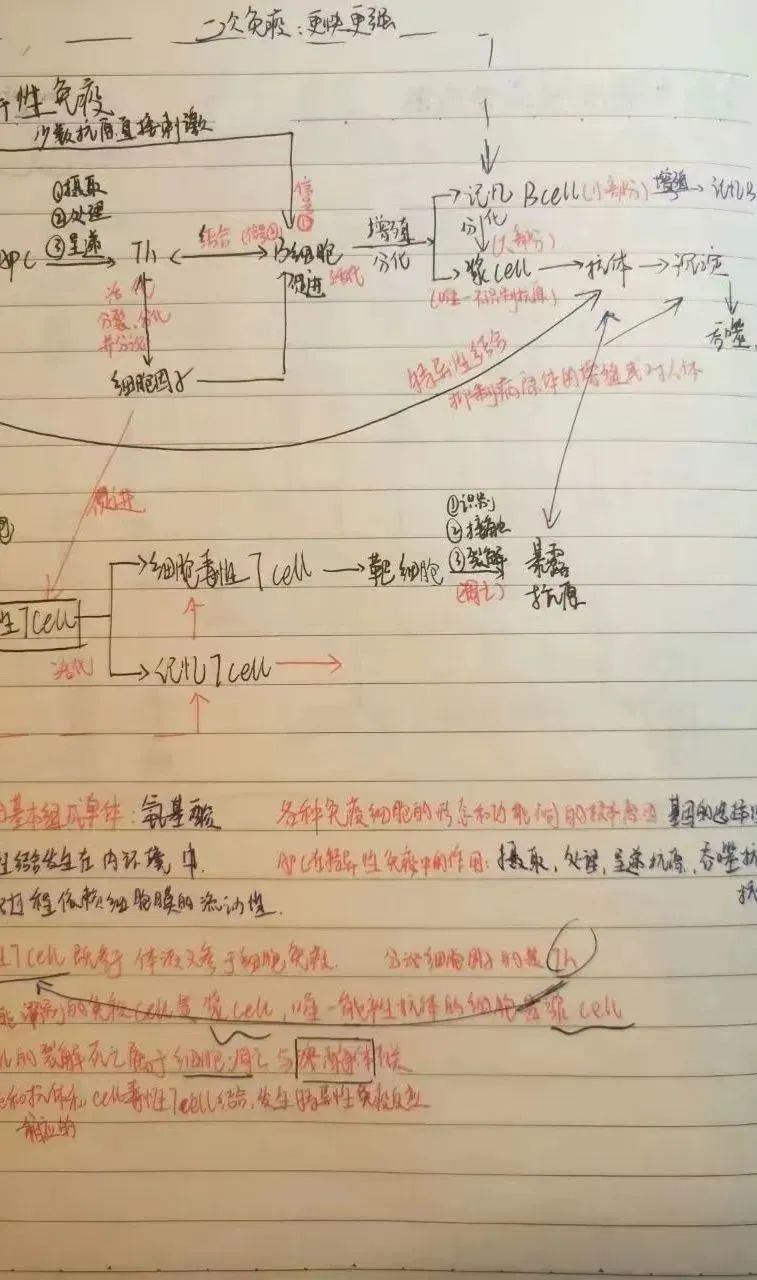 二次免疫：更快更强
性免疫
少数抗原直接刺激
①摄取
②处理
③呈递
APC Th 结合(信号②) B细胞 活化
信号①
增殖
分化
记忆Bcell(小部分) 增殖 记忆B
分化
(大部分)
浆cell 抗体 沉淀
(唯一不识别抗原)
吞噬
促进
活化
分裂、分化
并分泌
细胞因子
特异性结合
抑制病原体的增殖或对人体
促进
①识别
②接触
③裂解
(凋亡)
细胞毒性Tcell 靶细胞 暴露
抗原
性Tcell
活化
记忆Tcell
基本组成单体：氨基酸 各种免疫细胞的形态和功能不同的根本原因 基因的选择
结合发生在内环境中. APC在特异性免疫中的作用：摄取，处理，呈递抗原，吞噬抗
过程依赖细胞膜的流动性.
Tcell既参于体液又参于细胞免疫. 分泌细胞因子的是Th
的免疫cell是浆cell，唯一能产生抗体的细胞是浆cell
的裂解死亡属于细胞凋亡
和抗体和 cell毒性Tcell结合，发生特异性免疫反应
相应的